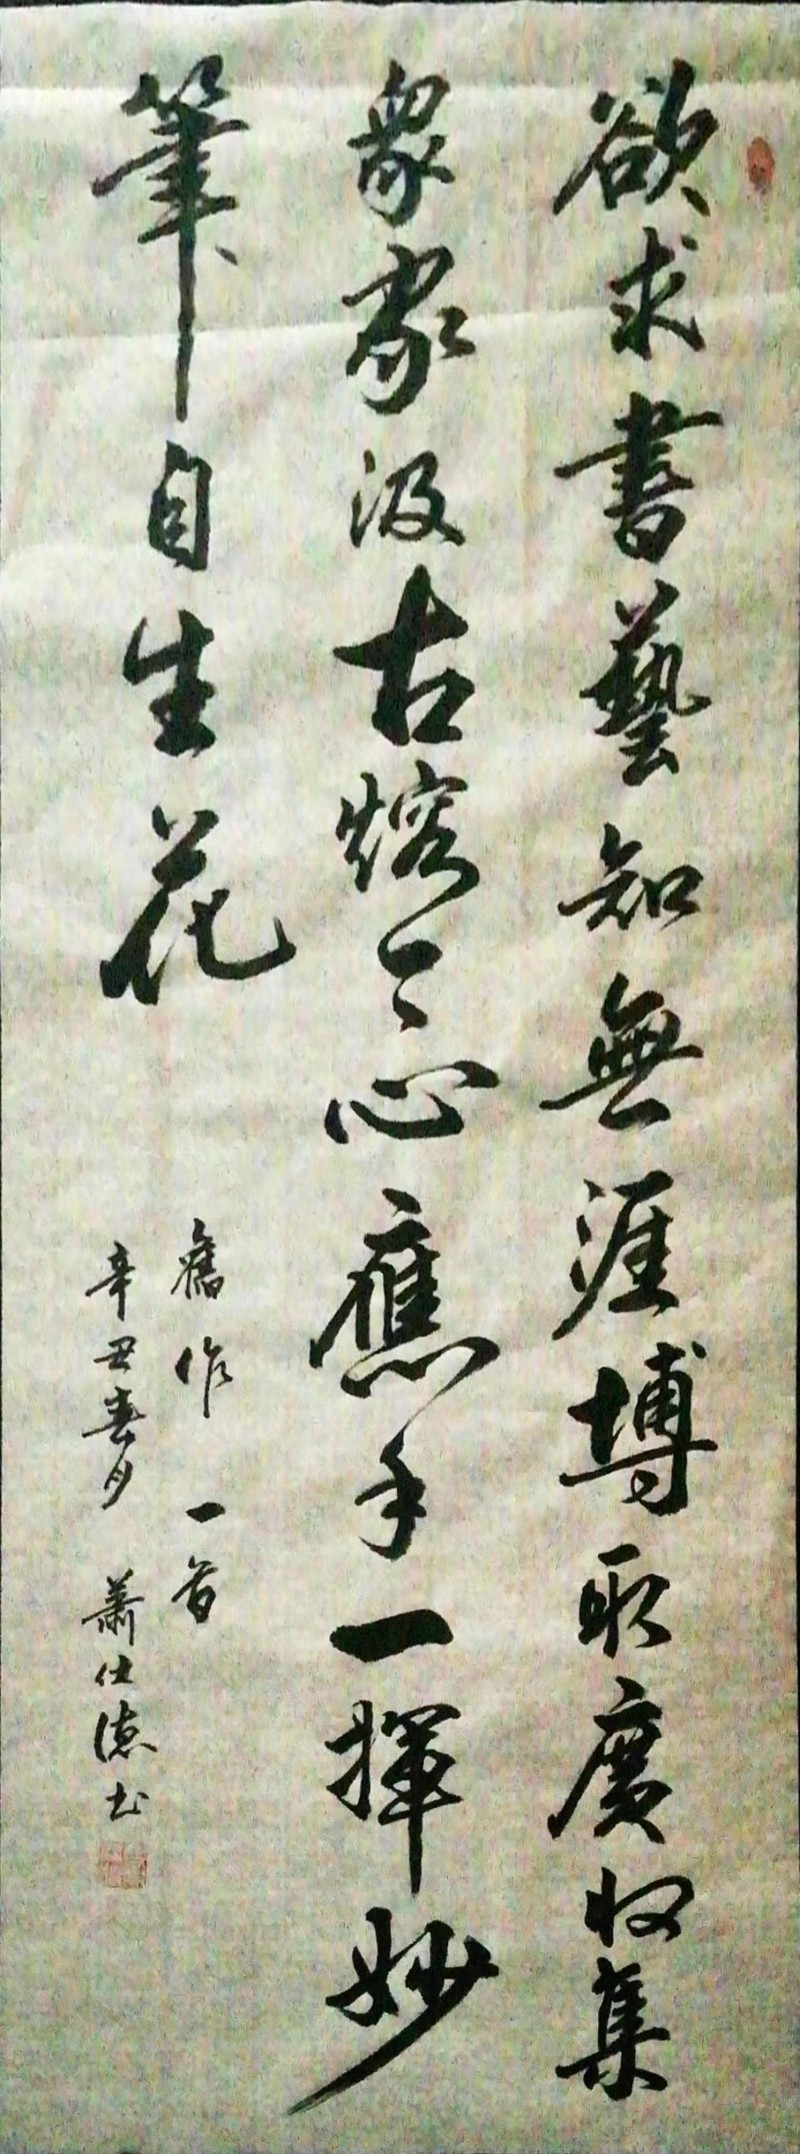 欲求書藝知無涯博取廣收集
衆家汲古熔今心應手一揮妙
筆自生花
舊作一首
辛丑春月蕭仕德书